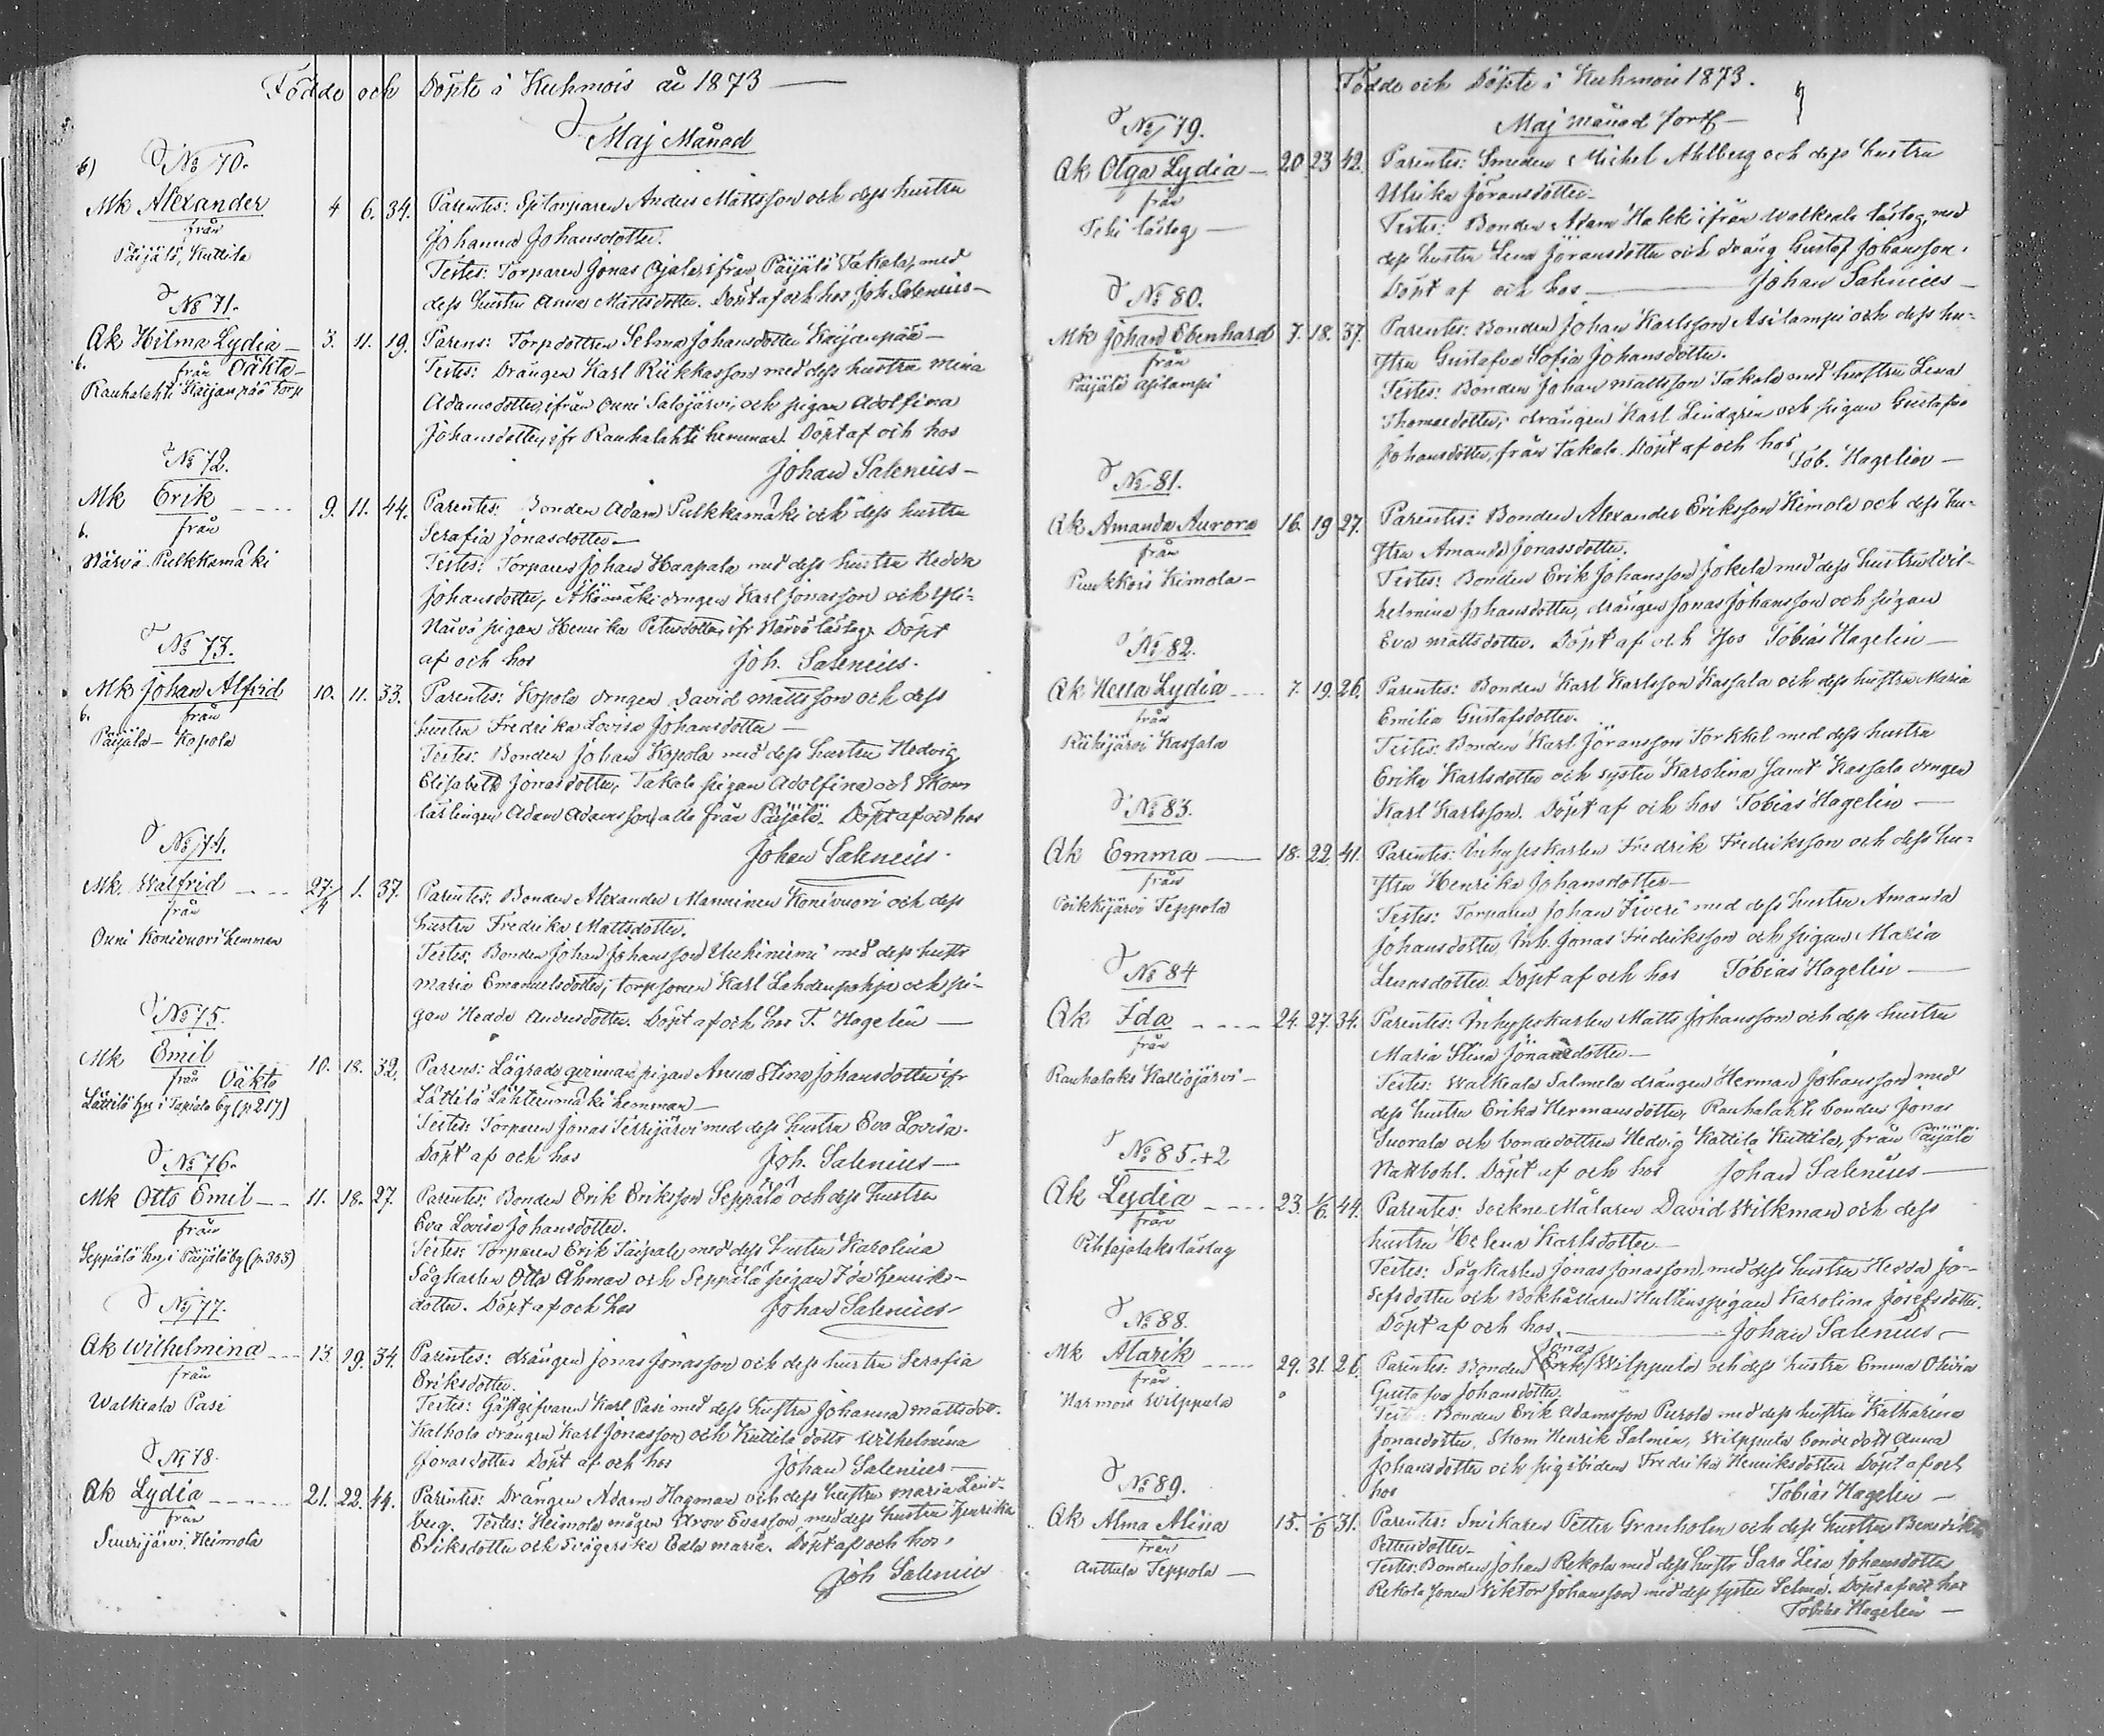 Födde och Döpte i Kuhmois år 1873 —
Maj Månad
6)
No 70.
Mk Alexander 4 6. 34.
från
Päijälä, Kuttila
Parentes: Spitorparen Anders Mattsson och dess hustru
Johanna Johansdotter.
Testes: Torparen Jonas Ojala, ifrån Päijälä Takala, med
dess hustru Anna Mattsdotter. Döpt af och hos Joh Salenius —
No 71.
Qk Hilma Lydia — 3. 11. 19.
6. från Oäkta —
Rauhalahti Kaijanpää torp
Parens: Torpdottren Selma Johansdotter Kaijanpää —
Testes: Drängen Karl Rickhasson med dess hustru Mina
Adamsdotter, ifrån Ouni Salojärvi, och pigan Adolfina
Johansdotter, ifr Rauhalahti hemman. Döpt af och hos
Johan Salenius —
No 72.
Mk Erik 9. 11. 44.
6. från
Närvä Pulkkamäki
Parentes: Bonden Adam Pulkkamäki och dess hustru
Serafia Jonasdotter —
Testes: Torparen Johan Haapala med dess hustru Hedda
Johansdotter, Äkömäki drngen Karl Jonasson och Yli-
Närvä pigan Henrika Petersdotter, ifr Närvä låstag. Döpt
af och hos Joh. Salenius.
No 73.
Mk Johan Alfrid 10. 11. 33.
6. från
Päijälä — Kopola
Parentes: Kopola drngen David Mattsson och dess
hustru Fredrika Lovisa Johansdotter —
Testes: Bonden Johan Kopola med dess hustru Hedvig
Elisabeth Jonasdotter, Takala pigan Adolfina och Skom
lärlingen Adam Adamsson, alla från Päijälä. Döpt af och hos
Johan Salenius.
No 74.
Mk. Walfrid 27/4 1. 37.
från
Ouni Konivuori hemman
Parentes: Bonden Alexander Manninen Konivuori och dess
hustru Fredrika Mattsdotter.
Testes: Bonden Johan Johansson Uuhiniemi med dess hustr
Maria Emanuelsdotter, torpsonen Karl Lahdenpohja och pi-
gan Hedda Andersdotter. Döpt af och hos T. Hagelin —
No 75.
Mk Emil 10. 18. 32.
från Oäkta
Lättilä hn i Tapiala by (p. 217)
Parens: Lägrade qvinnan pigan Anna Stina Johansdotter ifr
Lättilä Lähteenmäki hemman —
Testes: Torparen Jonas Terrijärvi med dess hustru Eva Lovisa.
Döpt af och hos Joh. Salenius —
No 76.
Mk Otto Emil — 11. 18. 27.
från
Seppälä hn i Päijälä by (p. 303)
Parentes: Bonden Erik Eriksson Seppälä och dess hustru
Eva Lovisa Johansdotter.
Testes: Torparen Erik Taipale, med dess hustru Karolina
Sågkarlen Otto Åhman och Seppälä pigan Ida Henriks-
dotter. Döpt af och hos Johan Salenius
No 77.
Qk Wilhelmina 13. 19. 34.
från
Walkiala Pasi
Parentes: drängen Jonas Jonasson och dess hustru Serafia
Eriksdotter.
Testes: Gästgifvaren Karl Pasi med dess hustru Johanna Mattsdot.
Kalhola drängen Karl Jonasson och Kuttila dottr Wilhelmina
Jonasdotter Döpt af och hos Johan Salenius —
No 78.
Qk Lydia 21. 22. 44.
från
Suurijärvi Heimola
Parentes: Drängen Adam Hagman och dess hustru Maria Lind-
berg. Testes: Heimola mågen Aron Evasson, med dess hustru Henrika
Eriksdotter och Svägerska Eda Maria. Döpt af och hos
Joh Salenius
Födde och Döpte i Kuhmois 1873.
Maj månad fortf —
No 79.
Qk Olga Lydia — 20. 23 42.
från
Tehi låstag —
Parentes: Smeden Michel Ahlberg och dess hustru
Ulrika Jöransdotter —
Testes: Bonden Adam Hakki ifrån Walkeala låstag, med
dess hustru Lena Jöransdotter och dräng Gustaf Johansson.
Döpt af och hos — Johan Salenius —
No 80.
Mk Johan Ebenhard 7. 18. 37.
från
Päijälä Asilampi
Parentes: Bonden Johan Karlsson Asilampi och dess hu-
stru Gustafva Sofia Johansdotter.
Testes: Bonden Johan Mattsson Takala med hustru Lena
Thomasdotter, drängen Karl Lindgren och pigan Gustafva
Johansdotter, från Takala. Döpt af och hos
Tob. Hagelin —
No 81.
Qk Amanda Aurora 16. 19 27.
från
Puukkois Kimola —
Parentes: Bonden Alexander Eriksson Kimola och dess hu-
stru Amanda Jonassdotter.
Testes: Bonden Erik Johansson Jokela med dess hustru Wil-
helmina Johansdotter, drängen Jonas Johansson och pigan
Eva Mattsdotter. Döpt af och Hos Tobias Hagelin —
No 82.
Qk Hella Lydia 7. 19. 26.
från
Riihijärvi Kassala
Parentes: Bonden Karl Karlsson Kassala och dess hustru Maria
Emilia Gustafsdotter.
Testes: Bonden Karl Jöransson Torkkel med dess hustru
Erika Karlsdotter och syster Karolina samt Kassala drngen
Karl Karlsson. Döpt af och hos Tobias Hagelin —
No 83.
Qk Emma — 18. 22. 41.
från
Poikkijärvi Teppola
Parentes: Inhyseskarlen Fredrik Fredriksson och dess hu-
stru Henrika Johansdotter —
Testes: Torparen Johan Iiveri med dess hustru Amanda
Johansdotter, Inh. Jonas Fredriksson och pigan Maria
Lenasdotter. Döpt af och hos Tobias Hagelin —
No 84
Qk Ida 24. 27. 34.
från
Rauhalaks Kalliojärvi —
Parentes: Inhyseskarlen Matts Johansson och dess hustru
Maria Stina Jonaedotter —
Testes: Walkeala Salmela drängen Herman Johansson, med
dess hustru Erika Hermansdotter, Rauhalahti bonden Jonas
Suorala och bondedottren Hedvig Kattila Kuttila, från Päijälä
Nattbohl. Döpt af och hos Johan Salenius —
No 85.+2
Qk Lydia 23. 1/6. 44.
från
Pihlajalaks låstag
Parentes: Sockne Målaren David Wilkman och dess
hustru Helena Karlsdotter —
Testes: Sågkarlen Jonas Jonasson, med dess hustru Hedda Jo-
sefsdotter och Bokhållaren Hulténs pigan Karolina Josefsdotter.
Döpt af och hos — Johan Salenius —
No 88.
Mk Alarik 29. 31. 26.
från
Harmois Wilppula
Jonas
Parentes: Bonden Erik Wilppula och dess hustru Emma Olivia
Gustafva Johansdotter.
Testes: Bonden Erik Adamsson Purola med dess hustru Katharina
Jonasdotter, Skom Henrik Salmin, Wilppula bondedott Anna
Johansdotter och pigebiden Fredrika Henriksdotter Döpt af och
hos Tobias Hagelin —
No 89.
Qk Alma Alina 15. 1/6 31.
från
Anttula Teppola —
Parentes: Snickaren Petter Granholm och dess hustru Benedikta
Pettersdotter —
Testes: Bonden Johan Rekola med dess hustr Sara Lisa Johansdotter
Rekola sonen Viktor Johansson med dess syster Selma. Döpt af och hos
Tobias Hagelin —